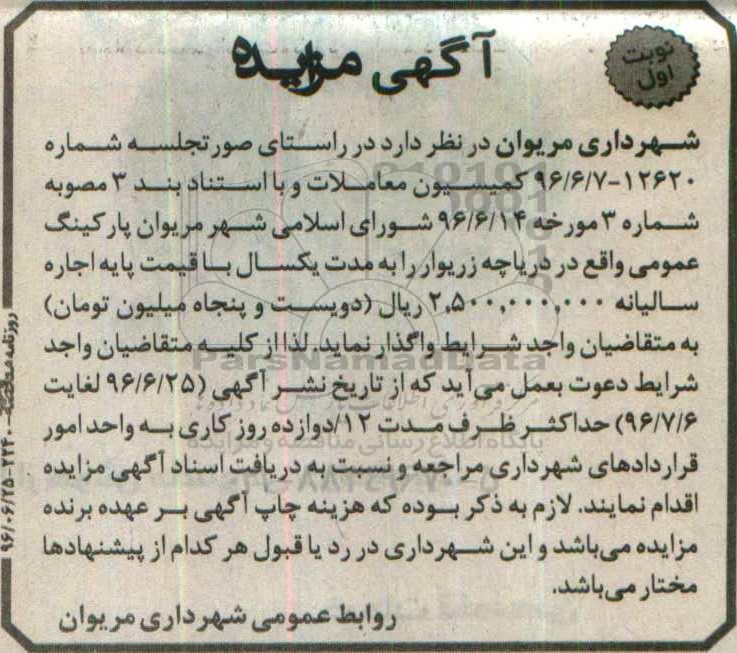 نوبت
اول
آگهی مزایده
شهرداری مریوان در نظر دارد در راستای صورتجلسه شماره
۱۲۶۲۰-۹۶/۶/۷ کمیسیون معاملات و با استناد بند ۳ مصوبه
شماره ۳ مورخه ۹۶/۶/۱۴ شورای اسلامی شهر مریوان پارکینگ
عمومی واقع در دریاچه زریوار را به مدت یکسال با قیمت پایه اجاره
سالیانه ۲,۵۰۰,۰۰۰,۰۰۰ ریال (دویست و پنجاه میلیون تومان)
به متقاضیان واجد شرایط واگذار نماید. لذا از کلیه متقاضیان واجد
شرایط دعوت بعمل می‌آید که از تاریخ نشر آگهی (۹۶/۶/۲۵ لغایت
۹۶/۷/۶) حداکثر ظرف مدت ۱۲/دوازده روز کاری به واحد امور
قراردادهای شهرداری مراجعه و نسبت به دریافت اسناد آگهی مزایده
اقدام نمایند. لازم به ذکر بوده که هزینه چاپ آگهی بر عهده برنده
مزایده می‌باشد و این شهرداری در رد یا قبول هر کدام از پیشنهادها
مختار می‌باشد.
روابط عمومی شهرداری مریوان
روزنامه مناقصه-۲۲۴۰-۹۶/۰۶/۲۵
ParsNamadData
پایگاه اطلاع رسانی مناقصه و مزایده